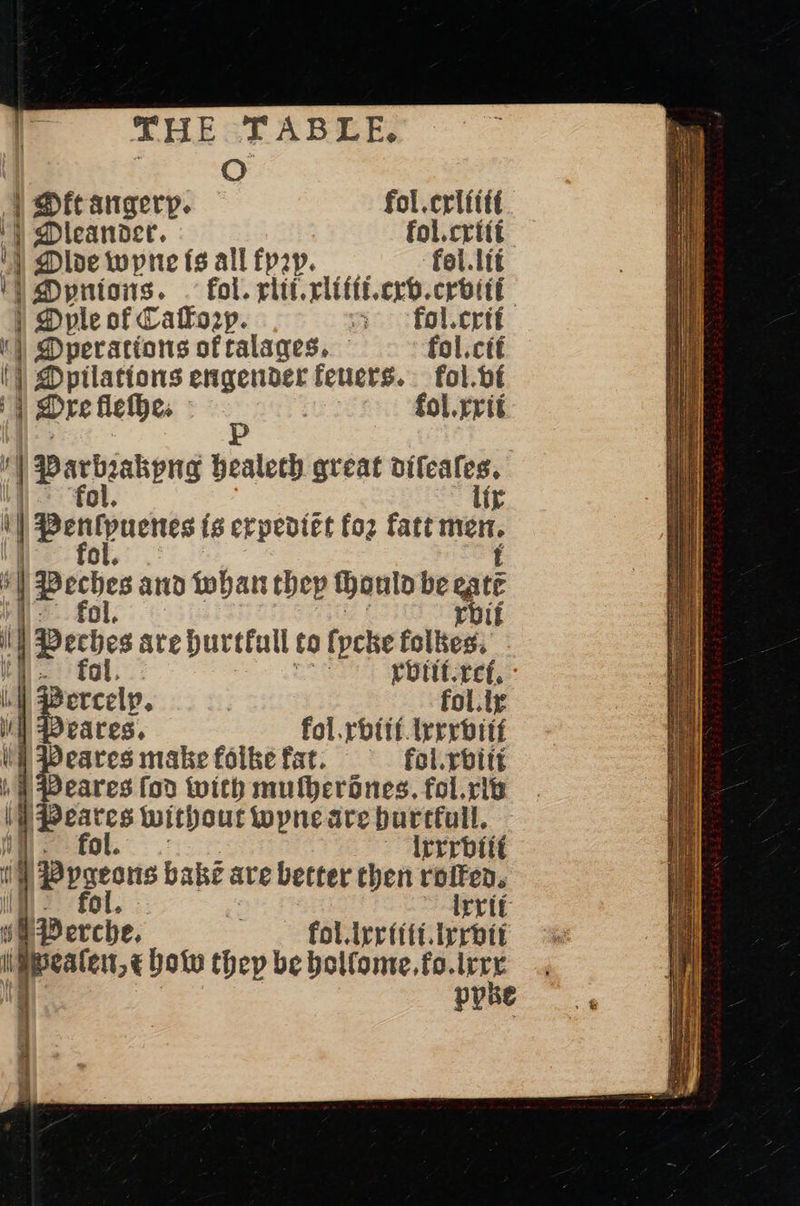 THE TABLE.
O
Oft angery. fol.cxliiii
Oleander. fol.cxiii
Olde wyne is all fyry. fol.lii
Oynions. fol. xlii.xliiii.cxv.cxviii
Oyle of Castory. fol.cxii
Operations of talages, fol.cii
Opilations engender feuers. fol.vi
Ore fleshe. fol.xxii
P
Parbrakyng healeth great diseases.
fol. lix
Pensyuenes is expediēt for fatt men.
fol. i
Peches and whan they should be eatē
fol. xvii
Peches are hurtfull to sycke folkes.
fol. xviii.xci.
Percely. fol.lx
Peares. fol.xviii.lxxxviii
Peares make folke fat. fol.xviii
Peares sod with musherōnes. fol.xlv
Peares without wyne are hurtfull.
fol. lxxxviii
Pygeons bakē are better then rosted.
fol. lxxii
Perche. fol.lxxiiii.lxxvii
peasen, & how they be holsome.fo.lxxx
pyke